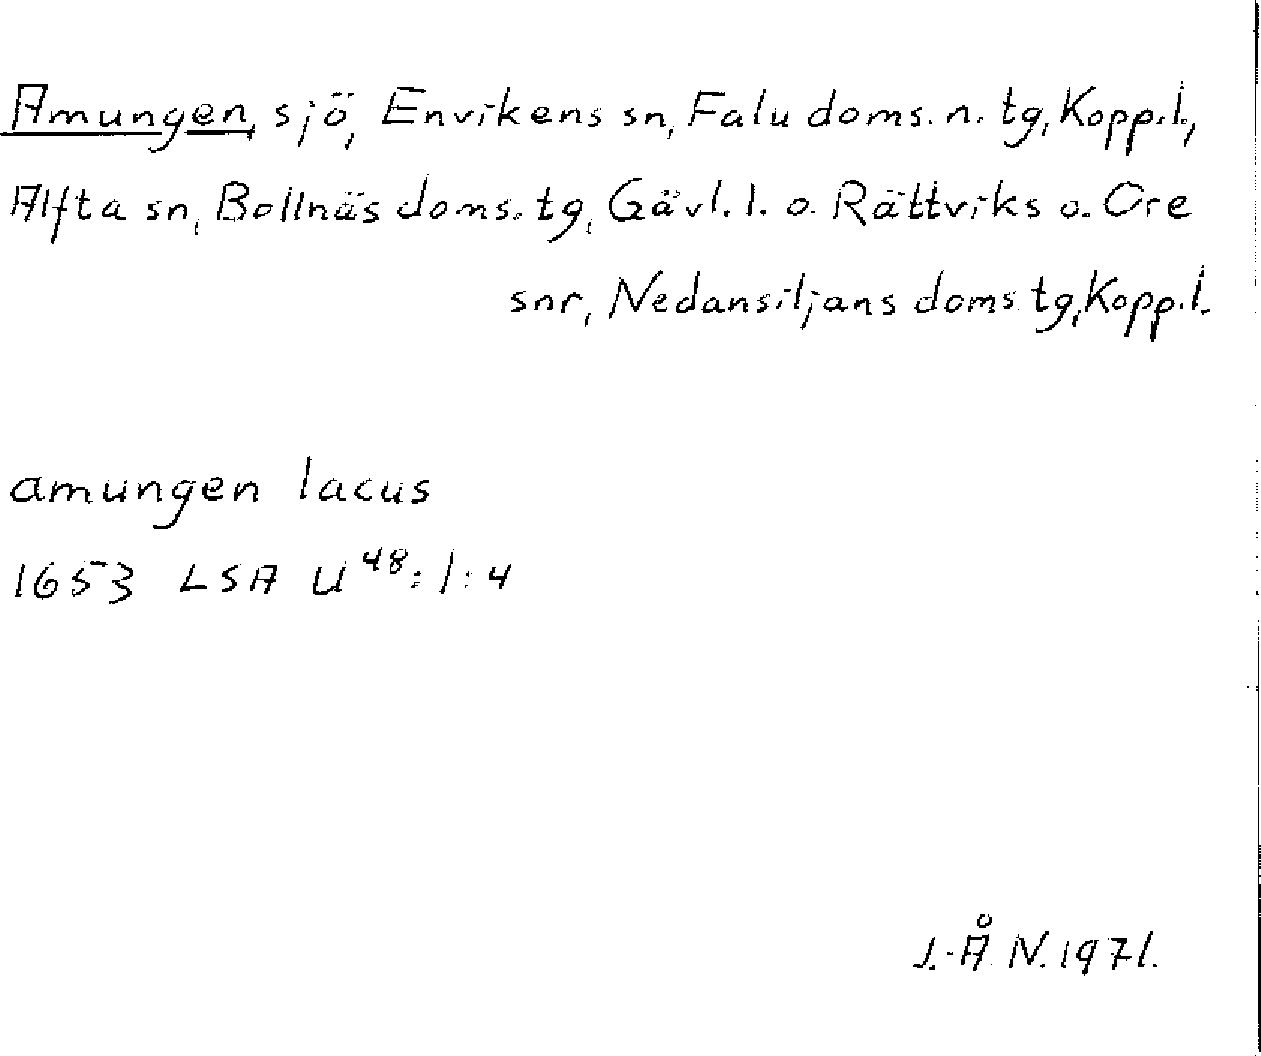 Amungen, sjö, Envikens sn, Falu doms. n. tg, Kopp.l.,
Alfta sn, Bollnäs doms. tg, Gävl. l. o. Rättviks o. Ore
snr, Nedansiljans doms tg, Kopp.l.
amungen lacus
1653 LSA U⁴⁸:1:4
J.-Å N. 1971.